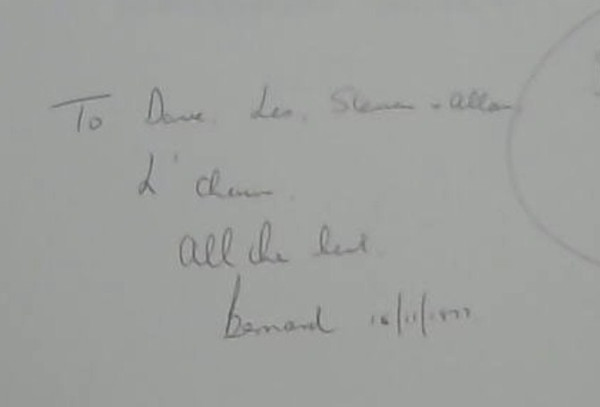 To Dave. Les. Steven + Allan
L'Chaim.
All the best.
Bernard 16/11/1977